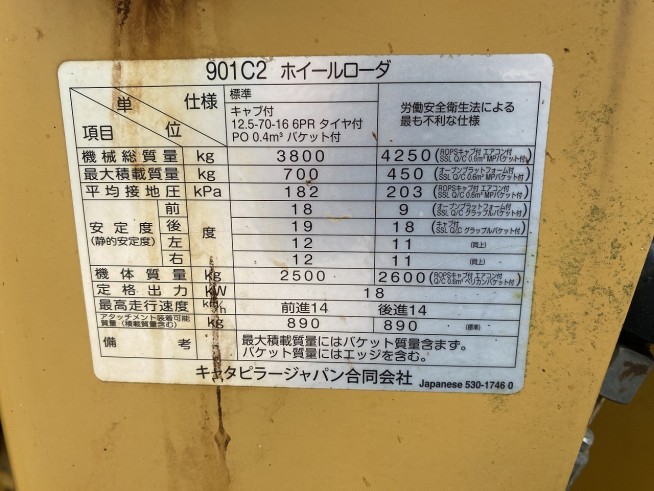 901C2 ホイールローダ
単 仕様 標準
キャブ付 労働安全衛生法による
12.5-70-16 6PR タイヤ付 最も不利な仕様
項目 位 PO 0.4m³ バケット付
機械総質量 kg 3800 4250 (ROPSキャブ付 エアコン付 SSL Q/C 0.6m³ MPバケット付)
最大積載質量 kg 700 450 (オープンプラットフォーム付 SSL Q/C 0.6m³ MPバケット付)
平均接地圧 kPa 182 203 (ROPSキャブ付 エアコン付 SSL Q/C 0.6m³ MPバケット付)
安定度 (静的安定度) 度
前 18 9 (オープンプラットフォーム付 SSL Q/C グラップルバケット付)
後 19 18 (キャブ付 SSL Q/C グラップルバケット付)
左 12 11 (同上)
右 12 11 (同上)
機体質量 kg 2500 2600 (ROPSキャブ付 エアコン付 Q/C 0.6m³ ペリカンバケット付)
定格出力 kW 18
最高走行速度 km/h 前進14 後進14
アタッチメント装着可能質量(積載質量含む) kg 890 890 (標準)
備考 最大積載質量にはバケット質量含まず。
バケット質量にはエッジを含む。
キャタピラージャパン合同会社 Japanese 530-1746 0